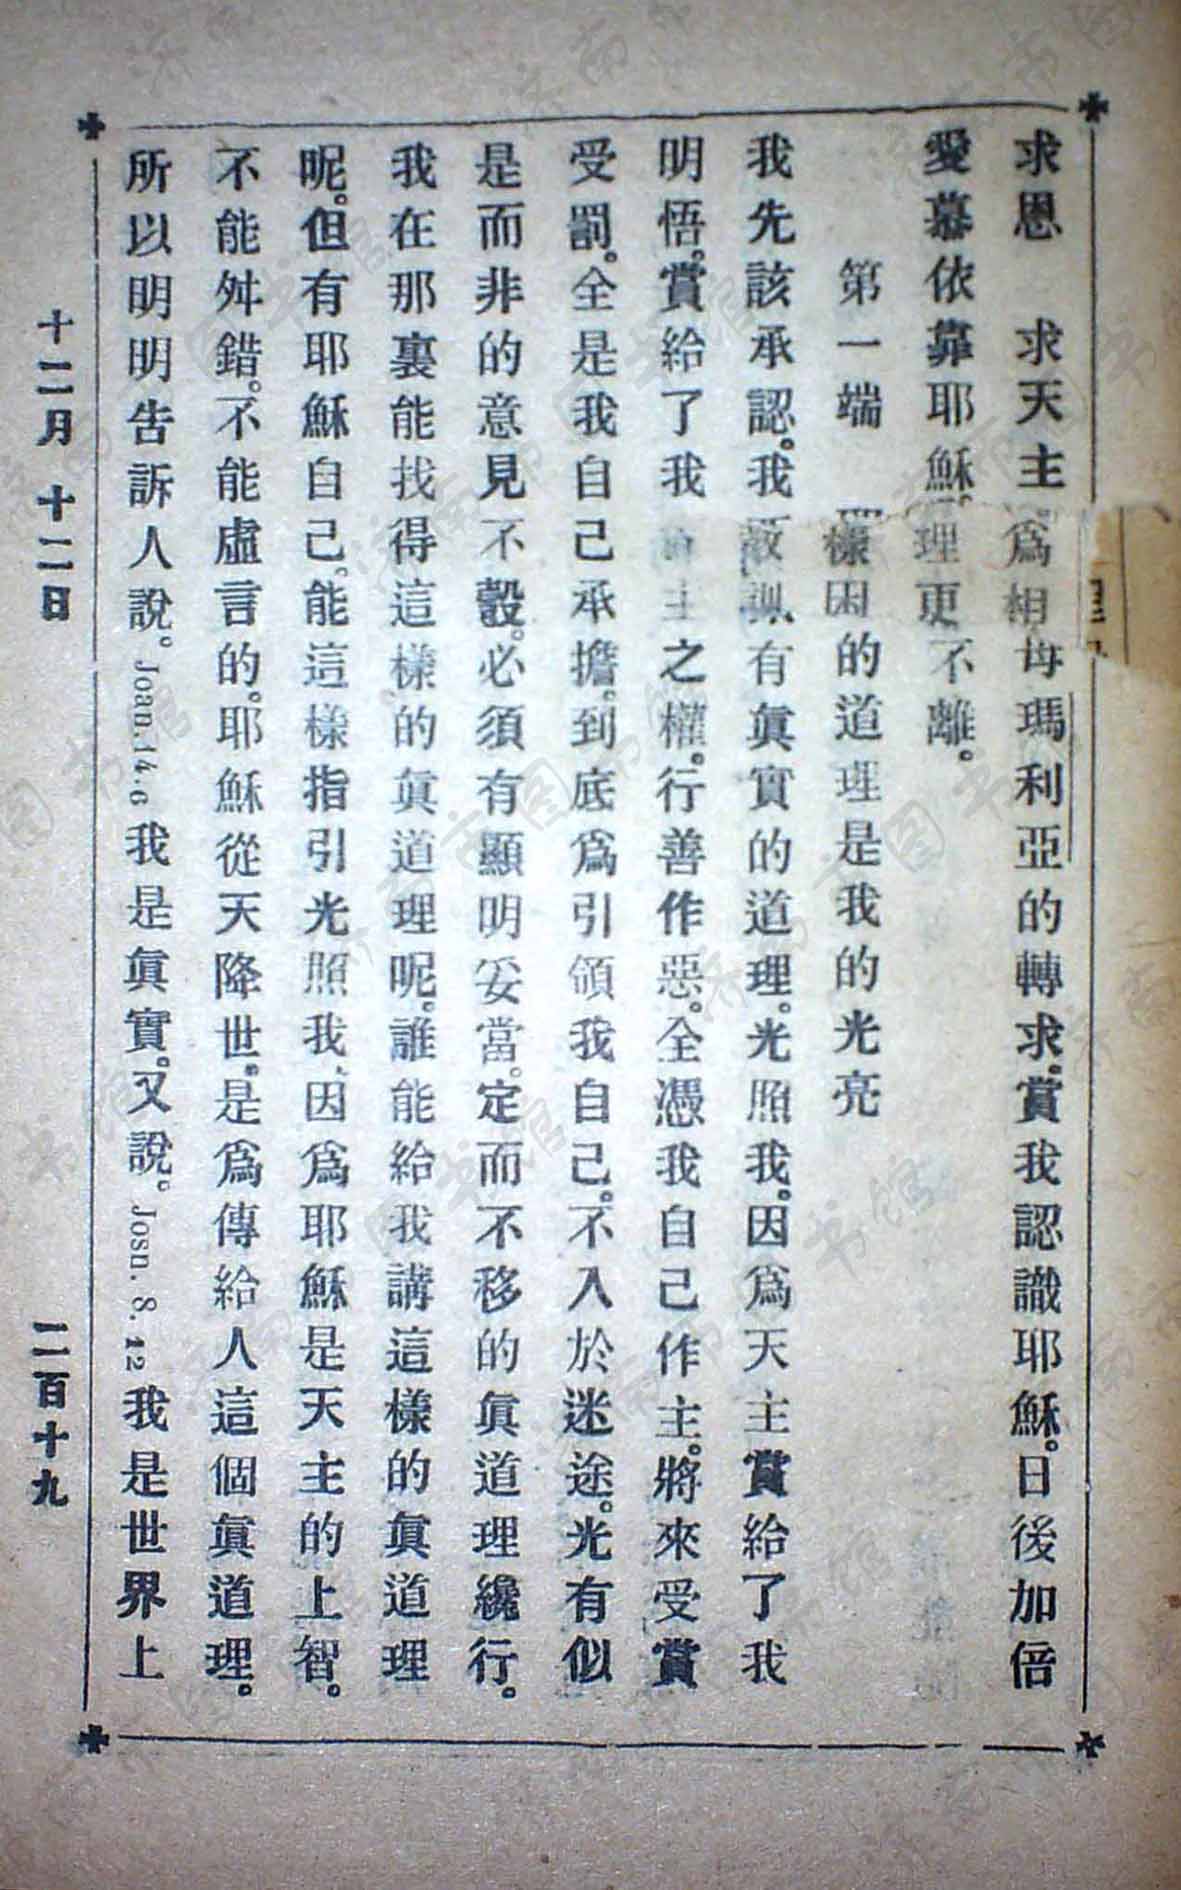 求恩　求天主。爲相母瑪利亞的轉求。賞我認識耶穌。日後加倍
愛慕依靠耶穌。理更不離。
第一端　樣因的道理是我的光亮
我先該承認。我教訓有眞實的道理。光照我。因爲天主賞給了我
明悟。賞給了我主之權。行善作惡。全憑我自己作主。將來受賞
受罰。全是我自己承擔。到底爲引領我自己。不入於迷途。光有似
是而非的意見不彀。必須有顯明妥當。定而不移的眞道理纔行。
我在那裏能找得這樣的眞道理呢。誰能給我講這樣的眞道理
呢。但有耶穌自己。能這樣指引光照我、因爲耶穌是天主的上智。
不能舛錯。不能虛言的。耶穌從天降世。是爲傳給人這個眞道理。
所以明明告訴人說。Joan. 14. 6 我是眞實。又說。Josn. 8. 12 我是世界上
十二月　十二日　二百十九